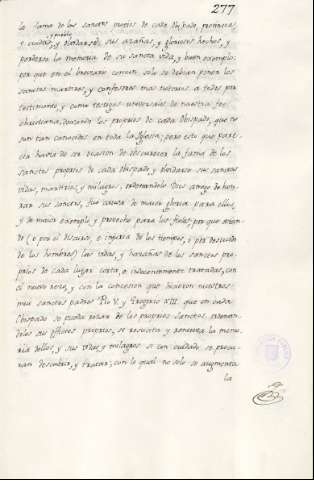 277
la fama de los sanctos propios de cada obispado, provincia,
y pueblo
y ciudad, y olvidarse de sus azañas, y gloriosos hechos, y
perderse la memoria de su sancta vida, y buen exemplo:
por que en el breviario comun solo se debian poner los
sanctos martires, y confessores mas notorios a todos por
testimonio, y como testigos universales de nuestra fee
chatolicana, dexando los proprios de cada obispado, que no
son tan conocidos en toda la Iglesia; pero esto que pare-
cia havia de ser ocasion de obscurecer la fama de los
sanctos proprios de cada obispado y olvidarse sus sanctas
vidas, martirios, y milagros, ordenandolo Dios amigo de hon-
rar sus sanctos, fue causa de maior gloria para ellos,
y de maior exemplo y provecho para los fieles: por que
(o por el discurso, e injuria de los tiempos, o por descuido
de los hombres) las vidas, y hazañas de los sanctos pro-
prios de cada lugar corta, e indecentemente tratadas, con
el nuevo rezo, y con la concesion que hicieron nuestros
mui sanctos padres Pio V. y Gregorio XIII. que en cada
Obispado se pueda rezar de los proprios sanctos, ordenan-
doles sus officios proprios, se resucita y renueva la memo-
ria dellos, y sus vidas y milagros se con cuidado se procu-
ran descubrir, y tratar; con lo qual no solo se augmenta
la